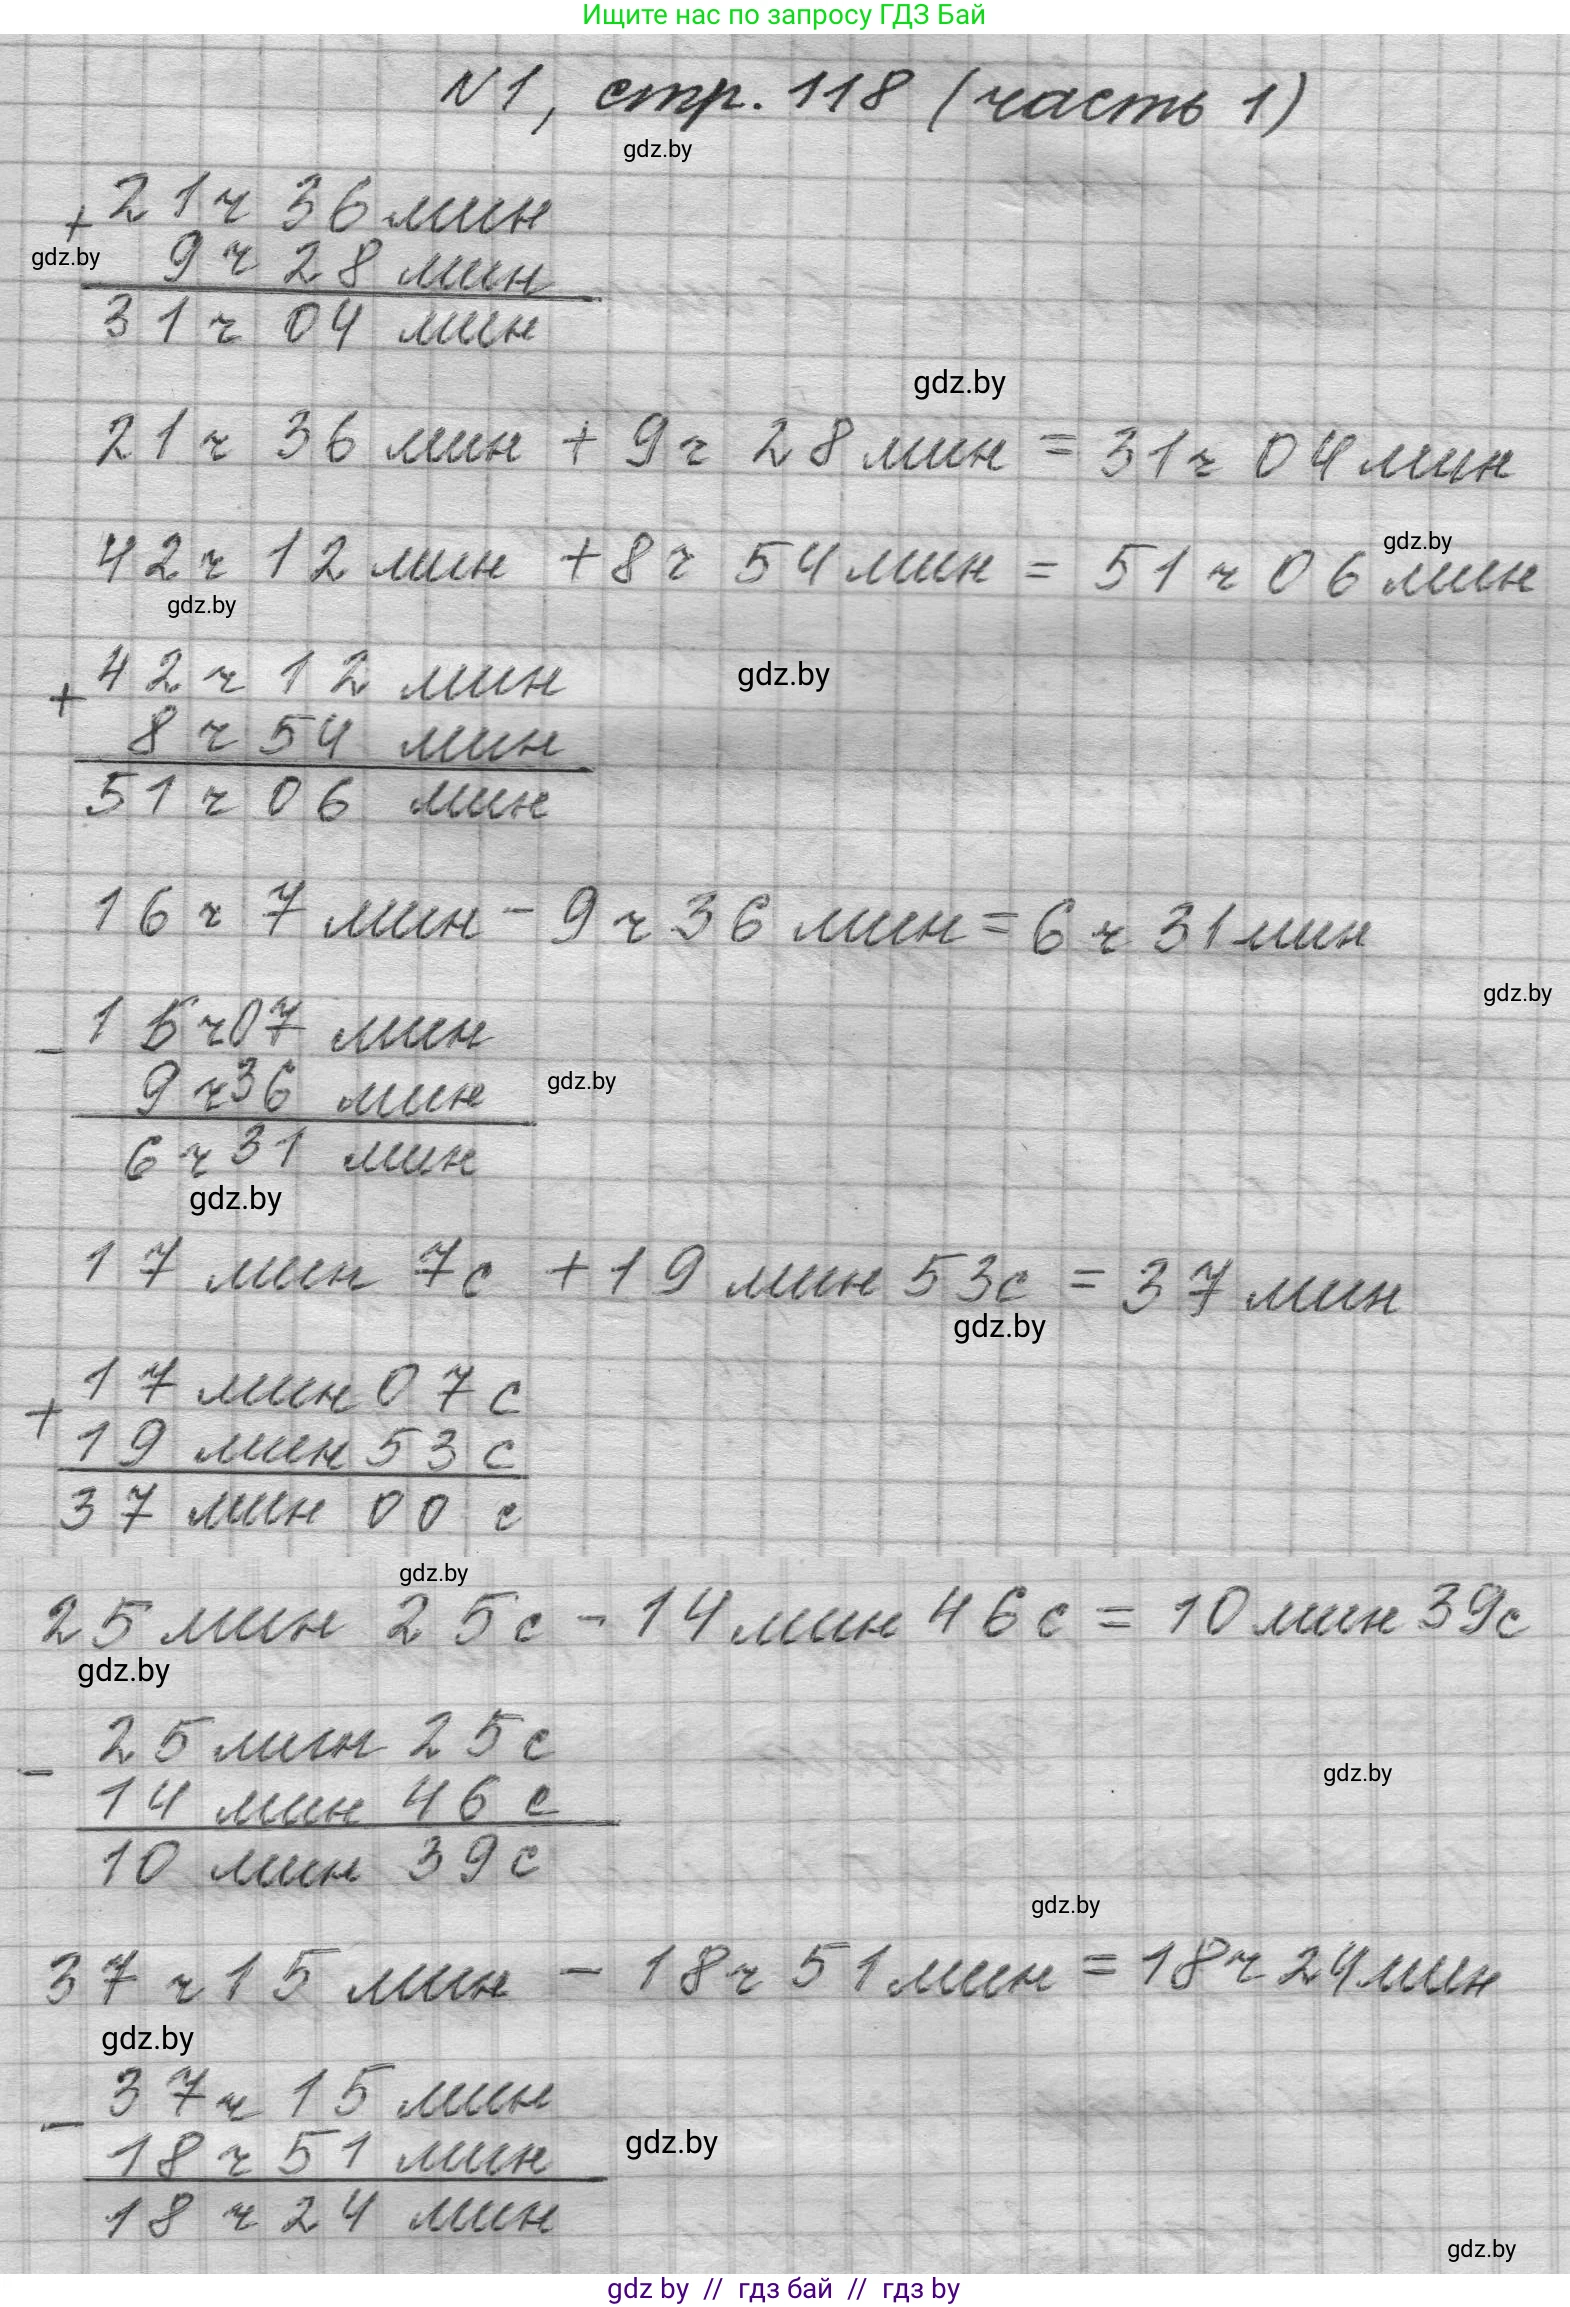 Ищите нас по запросу ГДЗ Бай
N1, стр. 118 (часть 1)
gdz.by
+ 21 ч 36 мин
gdz.by
9 ч 28 мин
31 ч 04 мин
gdz.by
21 ч 36 мин + 9 ч 28 мин = 31 ч 04 мин
gdz.by
42 ч 12 мин + 8 ч 54 мин = 51 ч 06 мин
gdz.by
+ 42 ч 12 мин
gdz.by
8 ч 54 мин
51 ч 06 мин
16 ч 7 мин - 9 ч 36 мин = 6 ч 31 мин
gdz.by
- 16 ч 07 мин
9 ч 36 мин
gdz.by
6 ч 31 мин
gdz.by
17 мин 7 с + 19 мин 53 с = 37 мин
gdz.by
+ 17 мин 07 с
19 мин 53 с
37 мин 00 с
gdz.by
25 мин 25 с - 14 мин 46 с = 10 мин 39 с
gdz.by
- 25 мин 25 с
gdz.by
14 мин 46 с
10 мин 39 с
gdz.by
37 ч 15 мин - 18 ч 51 мин = 18 ч 24 мин
gdz.by
- 37 ч 15 мин
gdz.by
18 ч 51 мин
18 ч 24 мин
gdz.by
gdz by // гдз бай // гдз by